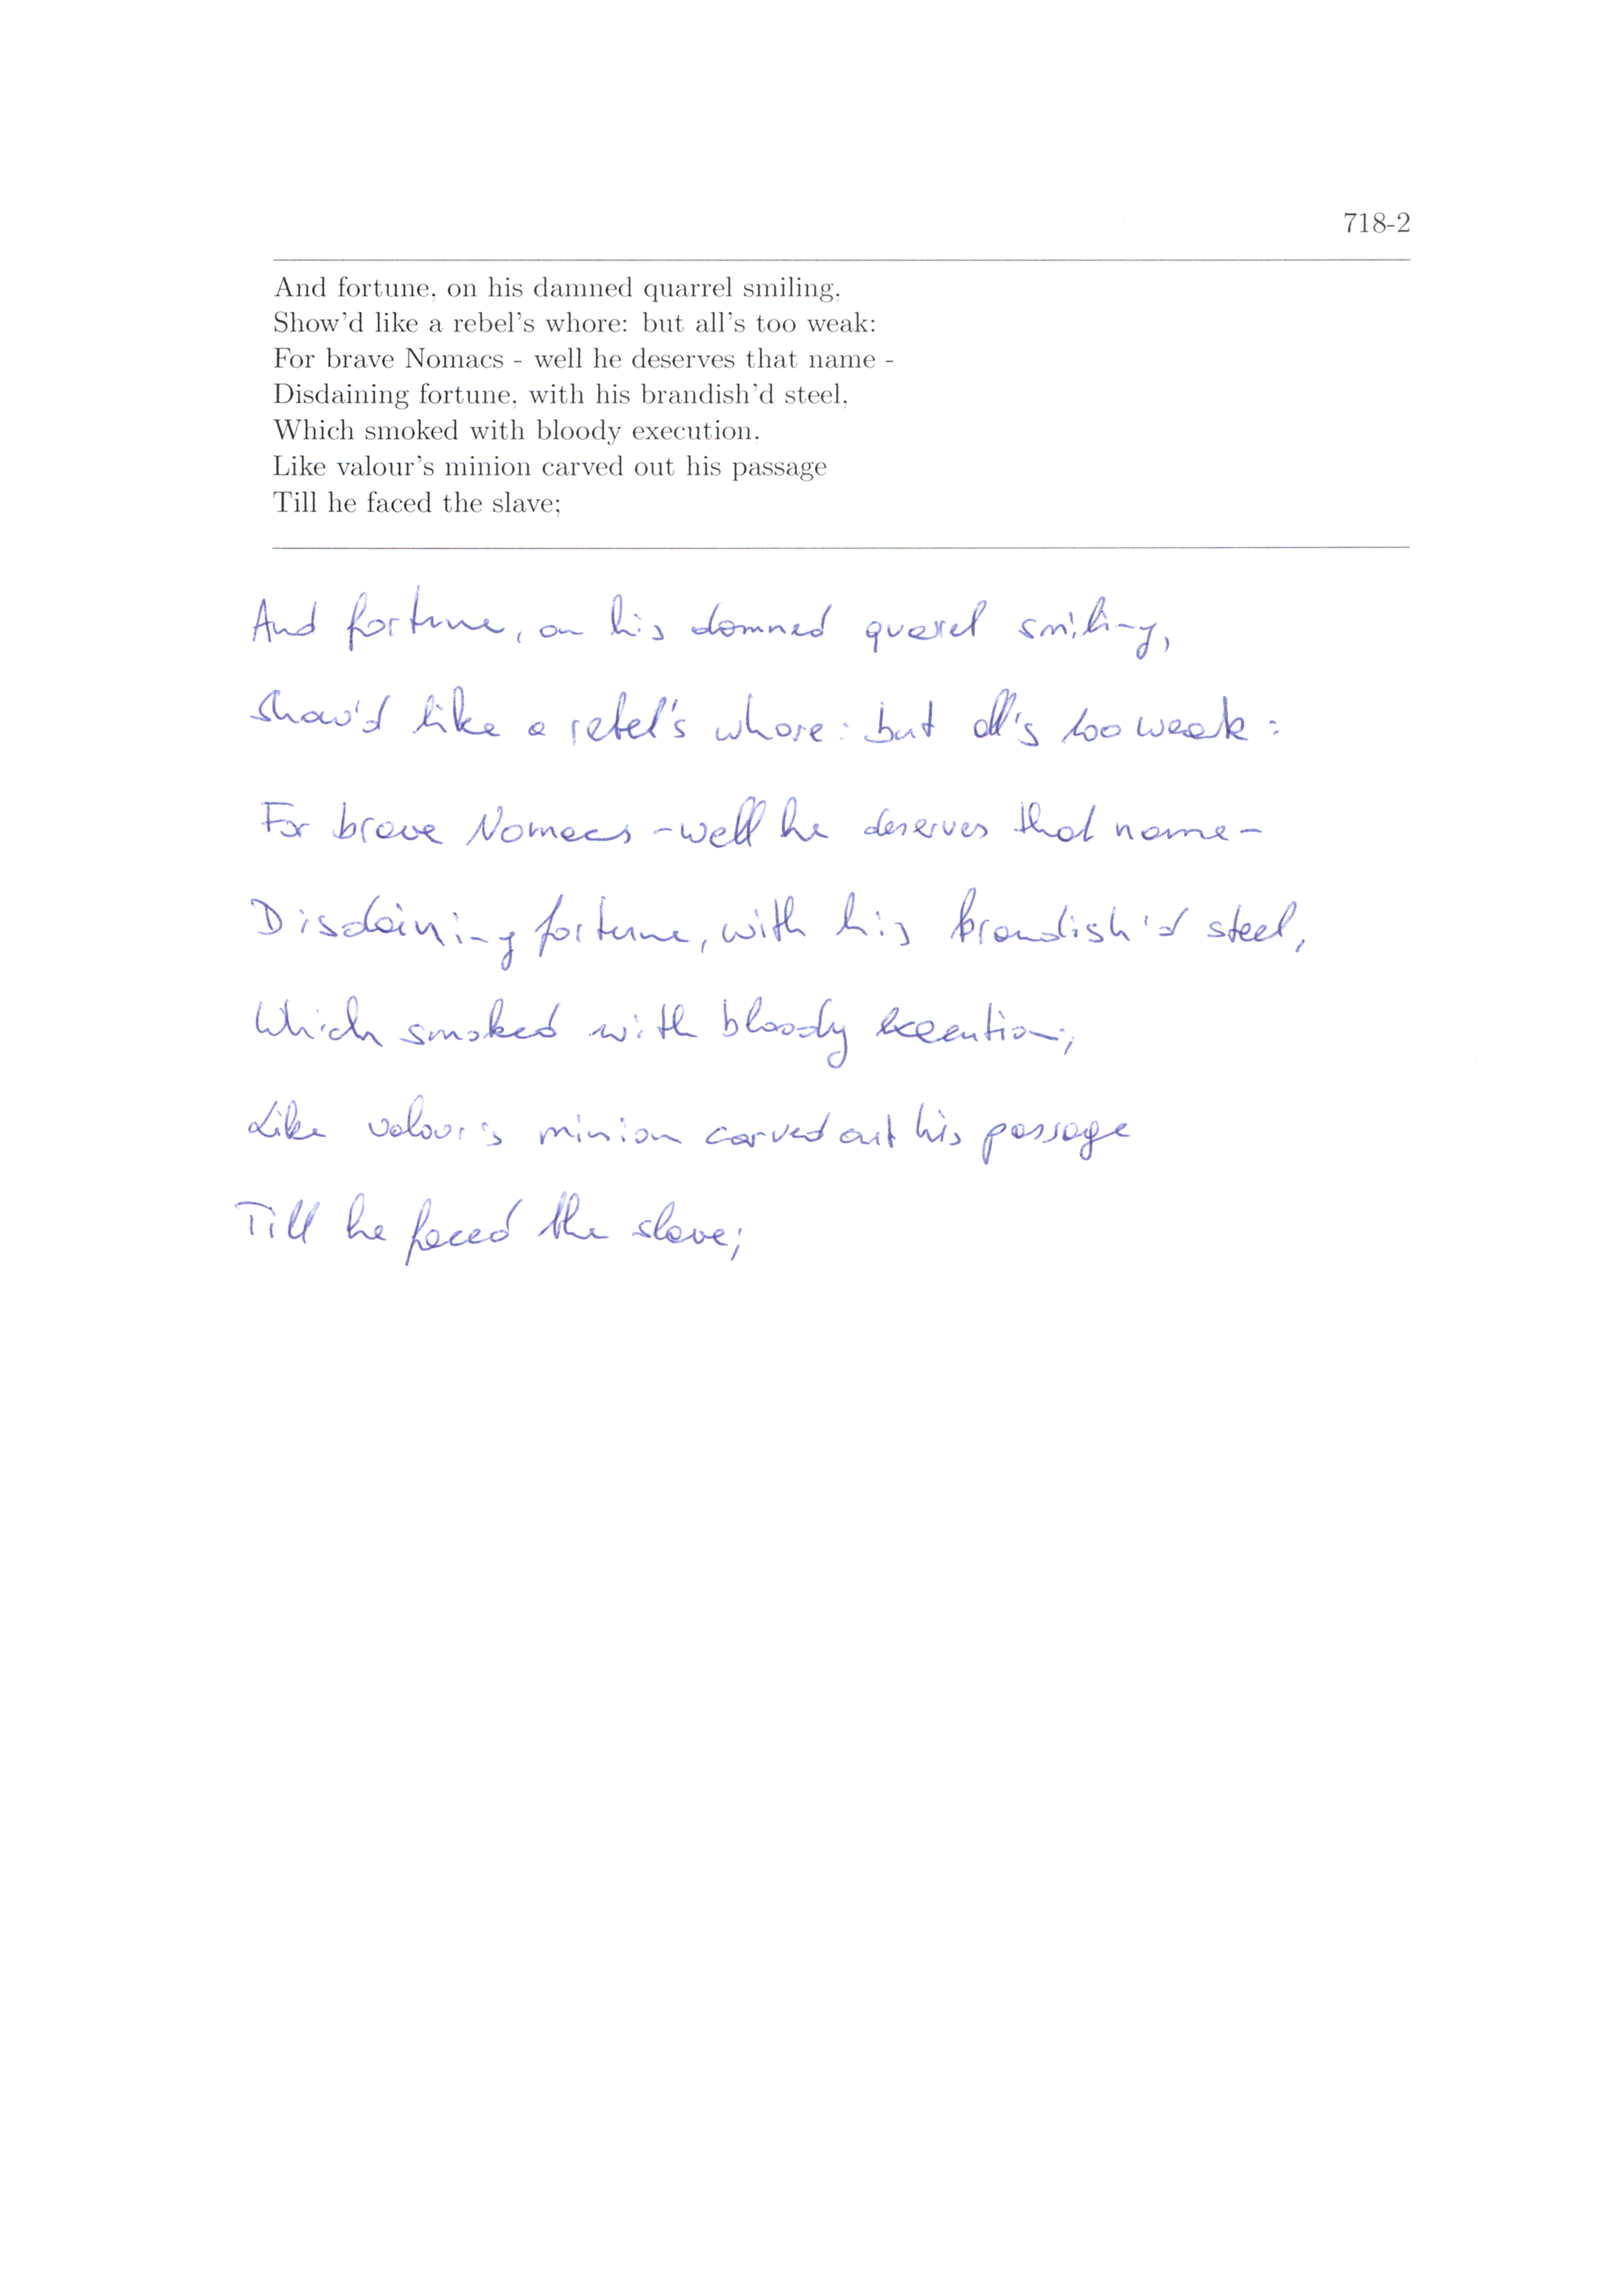 718-2
And fortune, on his damned quarrel smiling,
Show'd like a rebel's whore: but all's too weak:
For brave Nomacs - well he deserves that name -
Disdaining fortune, with his brandish'd steel,
Which smoked with bloody execution,
Like valour's minion carved out his passage
Till he faced the slave;
And fortune, on his damned quarrel smiling,
Show'd like a rebel's whore: but all's too weak:
For brave Nomacs - well he deserves that name -
Disdaining fortune, with his brandish'd steel,
Which smoked with bloody execution;
Like valour's minion carved out his passage
Till he faced the slave;